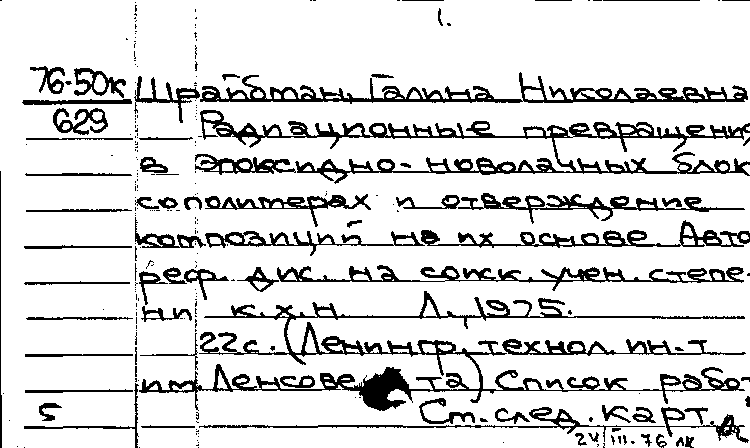 1.
76-50к Шрайбман, Галина Николаевна
629 Радиационные превращения
в эпоксидно-новолачных блок
сополимерах и отверждение
композиций на их основе. Авто
реф. дис. на соиск. учен. степе-
ни к.х.н. Л., 1975.
22с. (Ленингр. технол. ин-т
им. Ленсовета). Список работ
5 Ст. след. карт.
24/III-76 лк